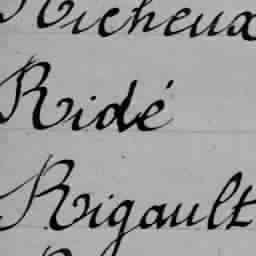 Richeux
Ridé
Rigault